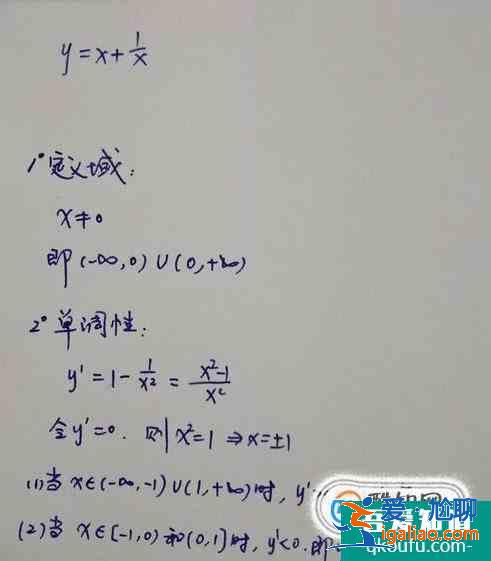 y=x+1/x
1°定义域:
x≠0
即(-∞,0)∪(0,+∞)
2°单调性:
y'=1-1/x²=x²-1/x²
令y'=0. 则x²=1⇒x=±1
(1)当x∈(-∞,-1)∪(1,+∞)时, y'
(2)当x∈[-1,0)和(0,1]时, y'<0.即
爱尬聊
ingaliao.com
qkoufu.com